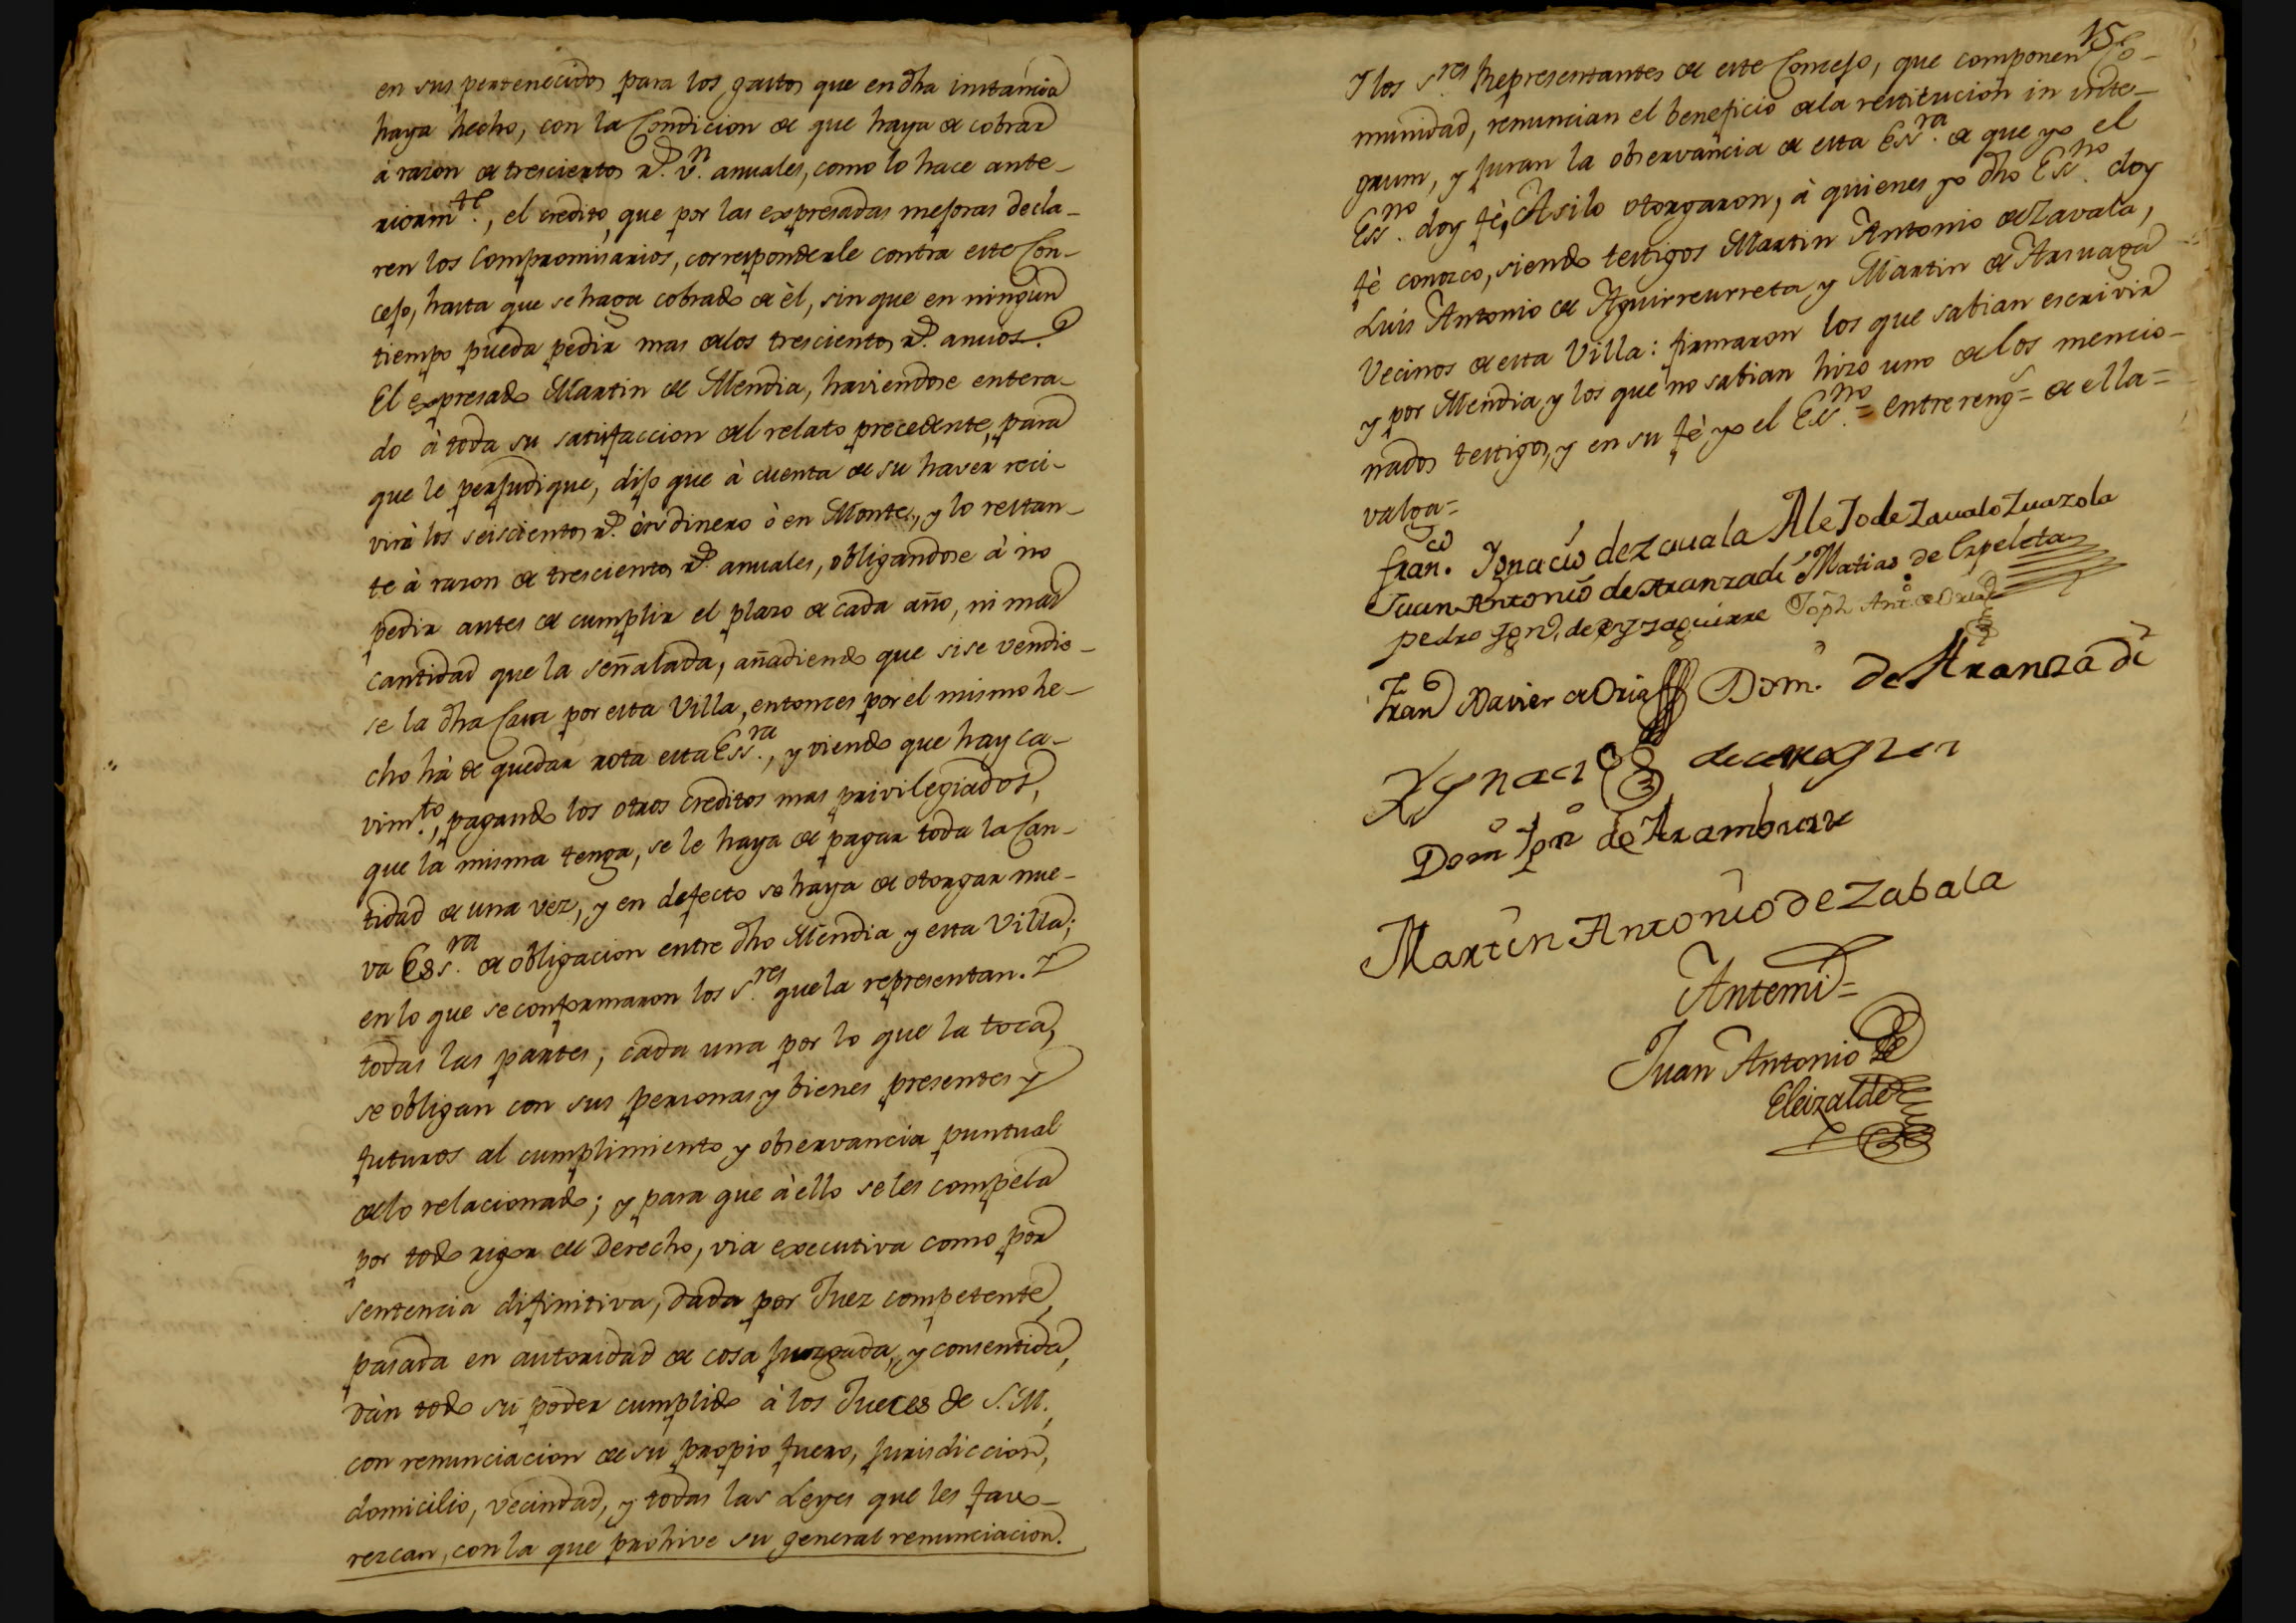 en sus pertenecidos para los gastos que en dha instancia
haya hecho, con la Condicion de que haya de cobrar
à razon de trescientos rs. vn. anuales, como lo hace ante-
riormte., el credito, que por las expresadas mejoras decla-
ren los Compromisarios, corresponderle contra este Con-
cejo, hasta que se haga cobrado de èl, sin que en ningun
tiempo pueda pedir mas de los trescientos rs. anuos.
El expresado Martin de Mendia, haviendose entera-
do à toda su satisfaccion del relato precedente, para
que le perjudique, dijo que à cuenta de su haver reci-
virà los seiscientos rs. en dinero ò en Monte, y lo restan-
te à razon de trescientos rs. anuales, obligandose à no
pedir antes de cumplir el plazo de cada año, ni mas
cantidad que la señalada, añadiendo que si se vendie-
se la dha Casa por esta Villa, entonces por el mismo he-
cho hà de quedar rota esta Essra., y viendo que hay ca-
vimto., pagando los otros creditos mas privilegiados,
que la misma tenga, se le haya de pagar toda la Can-
tidad de una vez, y en defecto se haya de otorgar nue-
va Essra. de obligacion entre dho Mendia y esta Villa;
en lo que se conformaron los Sres. que la representan. Y
todas las partes, cada una por lo que la toca,
se obligan con sus personas y bienes presentes y
futuros al cumplimiento y observancia puntual
de lo relacionado; y para que à ello se les compela
por todo rigor de Derecho, via executiva como por
sentencia difinitiva, dada por Juez competente,
pasada en autoridad de cosa juzgada, y consentida,
dàn todo su poder cumplido à los Jueces de S.M.,
con renunciacion de su propio fuero, jurisdiccion,
domicilio, vecindad, y todas las Leyes que les favo-
rezcan, con la que prohive su general renunciacion.
15
Y los Sres. Representantes de este Concejo, que componen Co-
munidad, renuncian el beneficio de la restitucion in inte-
grum, y juran la observancia de esta Essra. de que yo el
Essno. doy fè, Asi lo otorgaron, à quienes yo dho Essno. doy
fè conozco, siendo testigos Martin Antonio de Zavala,
Luis Antonio de Aguirreurreta y Martin de Arsuaga
Vecinos de esta Villa: firmaron los que sabian escrivir
y por Mendia, y los que no sabian hizo uno de los mencio-
nados testigos, y en su fè yo el Essno. = entrereng.s = de ella =
valga =
Franco. Ignacio de Zauala Alejo de Zaualo Zuazola
Juan Antonio de Aranzadi Matias de Ezpeleta
pedro Ign.o de eyzaguirre Joph Anto. de Oria
Frano. Xavier de Oria Domo. de Aranzadi
Ygnacio de
Domo. Igno. de Aramburu
Martin Antonio de Zabala
Antemi =
Juan Antonio de
Eleizalde